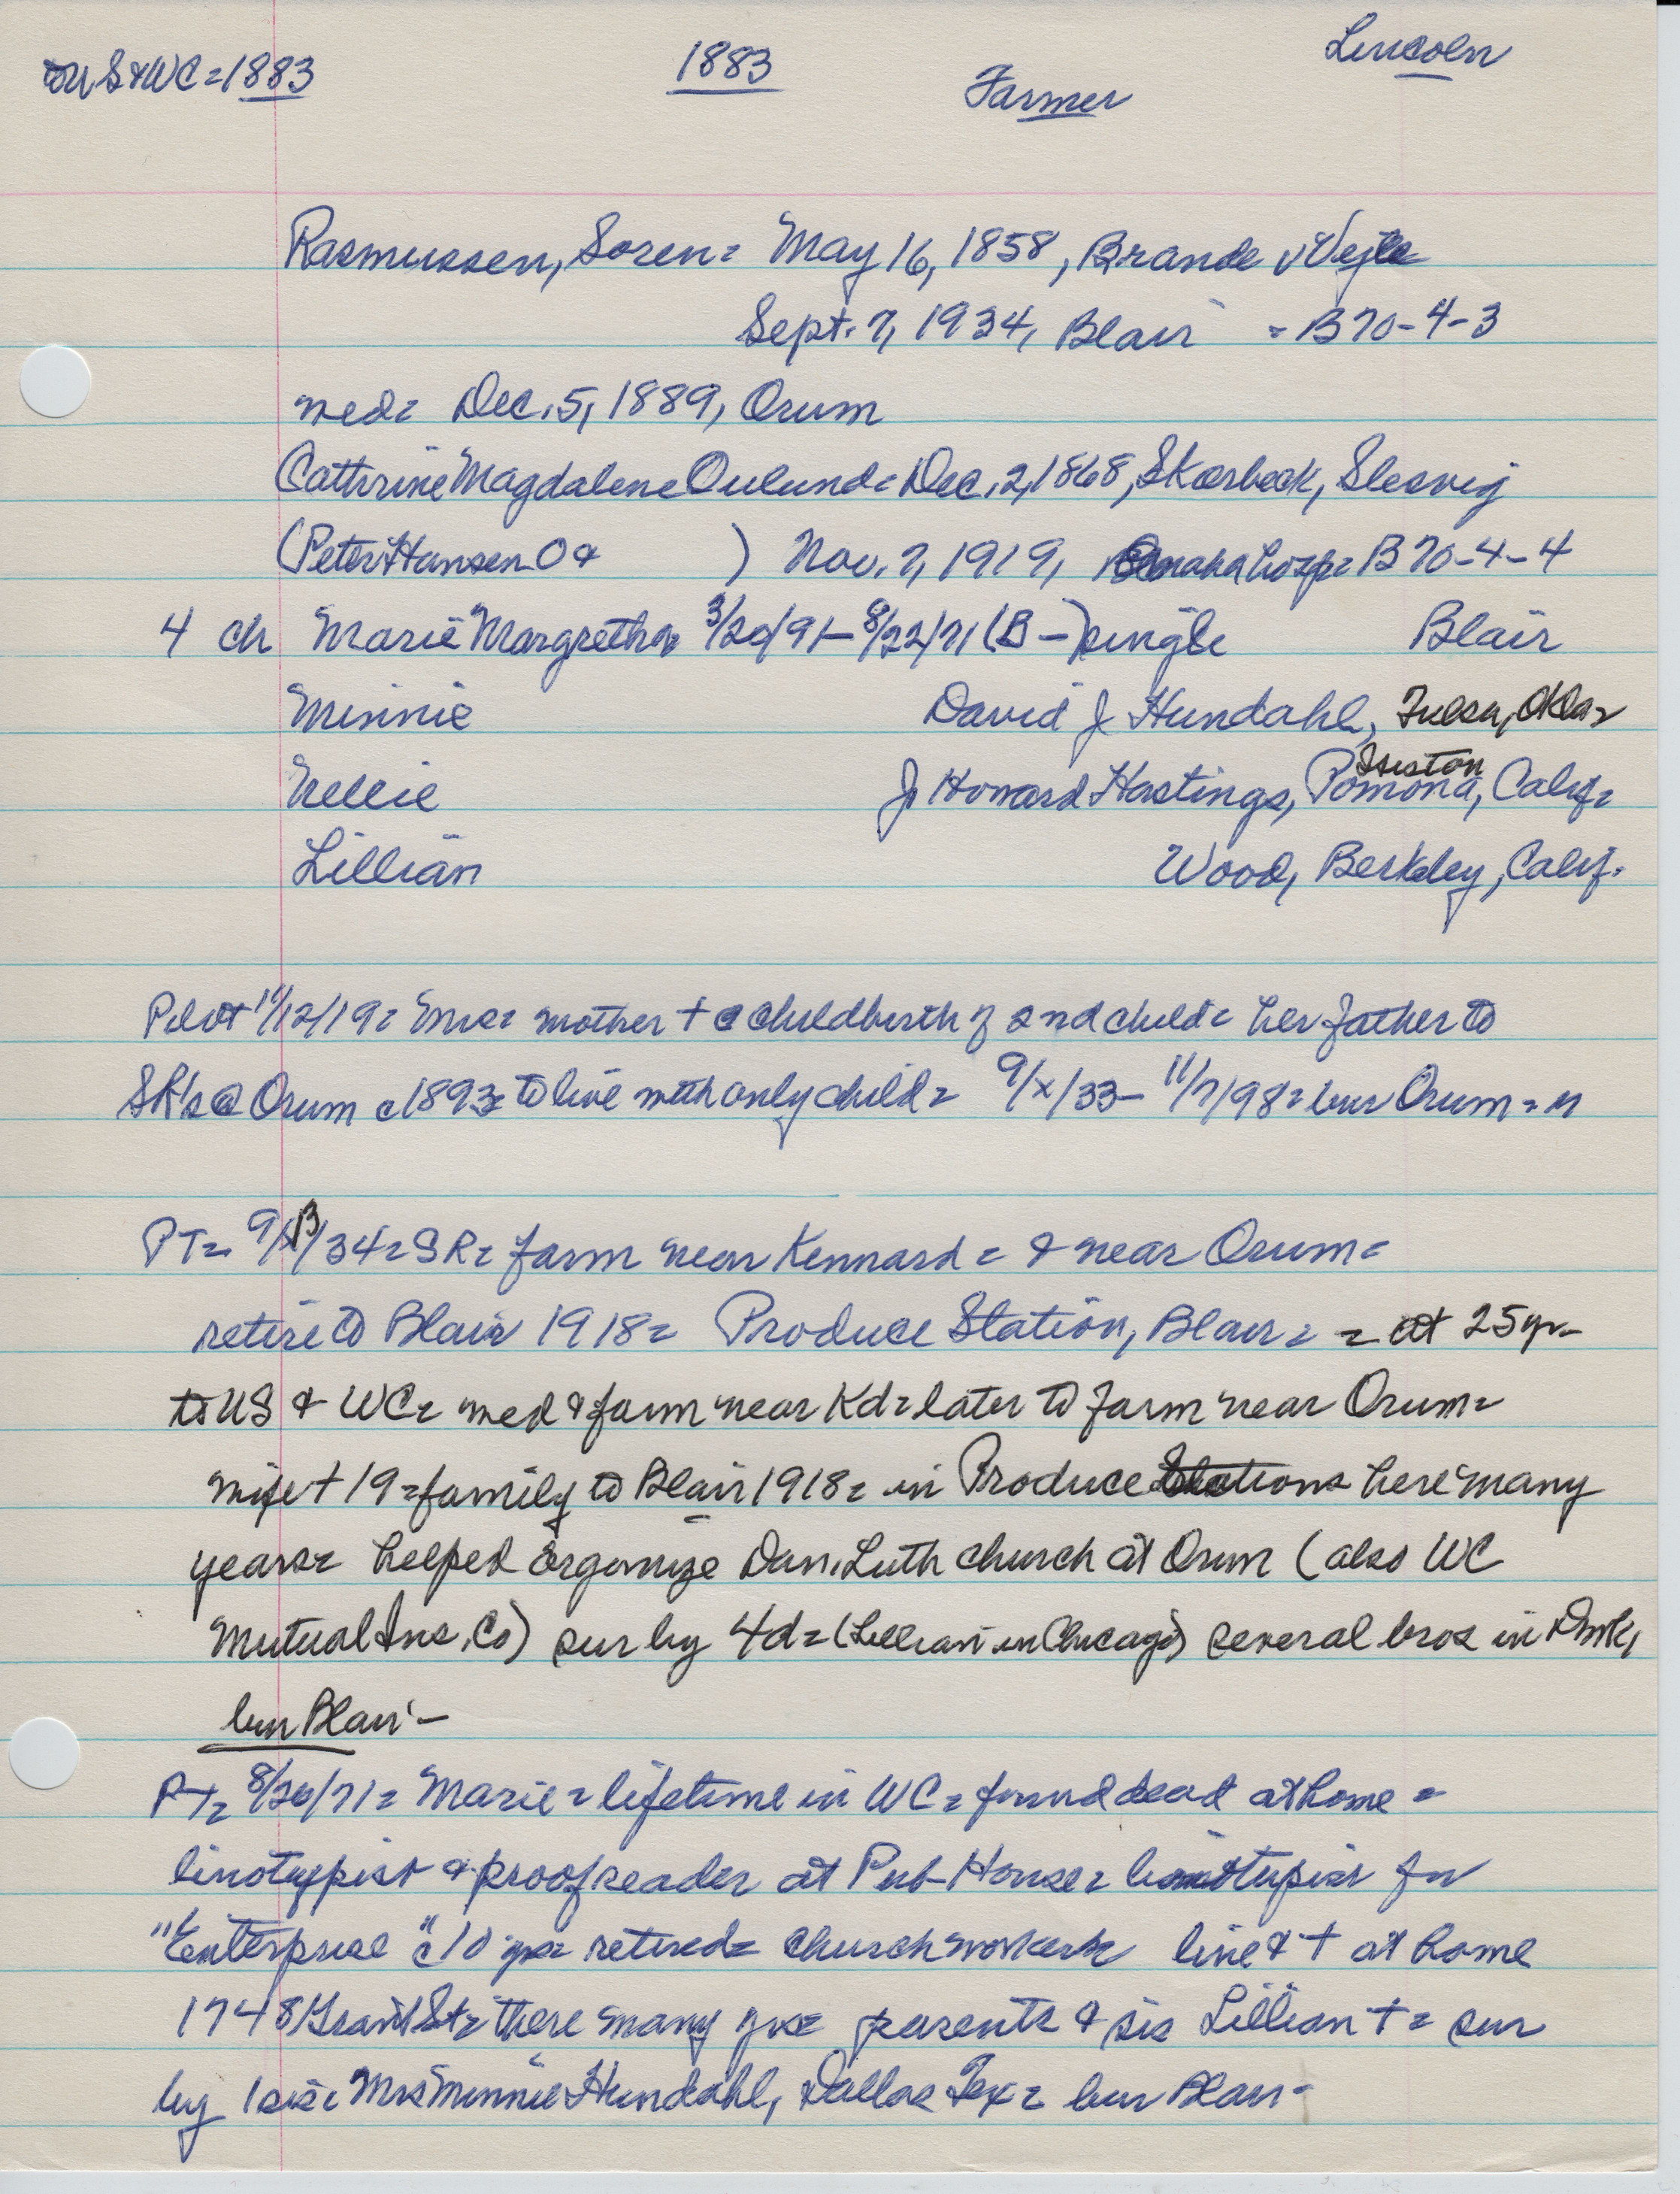 to US & WC = 1883 1883 Farmer Lincoln
Rasmussen, Soren = May 16, 1858, Brande v Vejle
Sept. 7, 1934, Blair = B70-4-3
med = Dec. 5, 1889, Orum
Cathrine Magdalene Oulund = Dec. 2, 1868, Skærbæk, Slesvig
(Peter Hansen O & ) Nov. 7, 1919, Omaha hosp = B70-4-4
4 ch Marie Margretha 3/20/91 - 8/22/71 (B -) single Blair
Minnie David J Hundahl, Tulsa, Okla =
Nellie J Howard Hastings, Pomona, Calif =
Lillian Wood, Berkley, Calif.
Pilot 11/12/19 = Mrs = mother + @ childbirth of 2nd child = her father to
SR's @ Orum c1893 = to live with only child = 9/x/33 - 11/7/98 = bur Orum = "
PT = 9/13/34 = SR = farm near Kennard = & near Orum =
retire to Blair 1918 = Produce Station, Blair = = at 25 yr -
to US & WC = med & farm near Kd = later to farm near Orum =
wife + 19 = family to Blair 1918 = in Produce Stations here many
years = helped organize Dan. Luth church at Orum (also WC
Mutual Ins. Co) sur by 4d = (Lillian in Chicago) several bros in Dmk,
bur Blair -
PT = 8/26/71 = Marie = lifetime in WC = found dead at home =
linotypist & proofreader at Pub House = linotypist for
"Enterprise" c10 yrs = retired = church worker = live & + at home
1748 Grant St = there many yrs = parents & sis Lillian + = sur
by 1 sis = Mrs Minnie Hundahl, Dallas Tex = bur Blair -